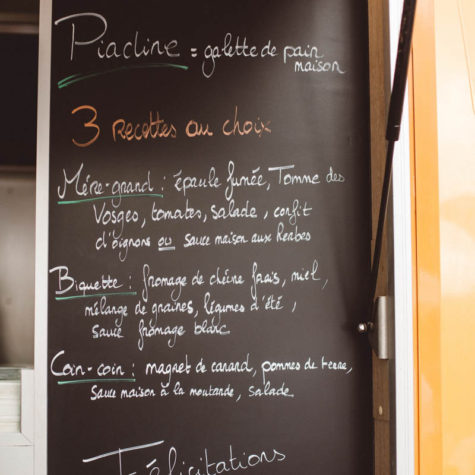 Piadine = galette de pain
maison
3 recettes au choix
Mère-grand : épaule fumée, Tomme des
Vosges, tomates, salade, confit
d'oignons ou sauce maison aux herbes
Biquette : fromage de chèvre frais, miel,
mélange de graines, légumes d'été,
sauce fromage blanc
Coin-coin : magret de canard, pommes de terre,
sauce maison à la moutarde, salade
Félicitations